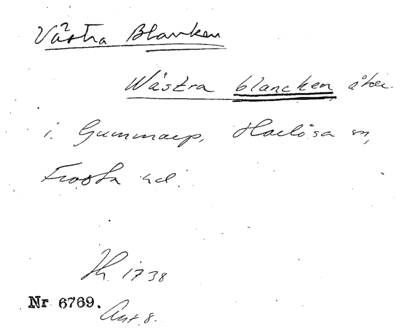 Västra Blanken
Wästra blancken, åker
i Gummarp, Harlösa sn,
Frosta hd.
Lh. 1738
Nr 6769.
Ant. 8.